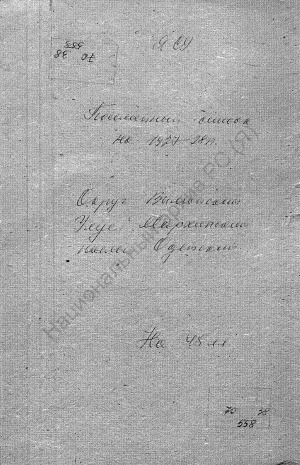 70 38
558
ЯСЯ
Поименный список
на 1927-28 г.
Округ Вилюйский
Улус Мархинский
Наслег Одейский
На 45 лл
70 38
558
Национальный архив РС (Я)